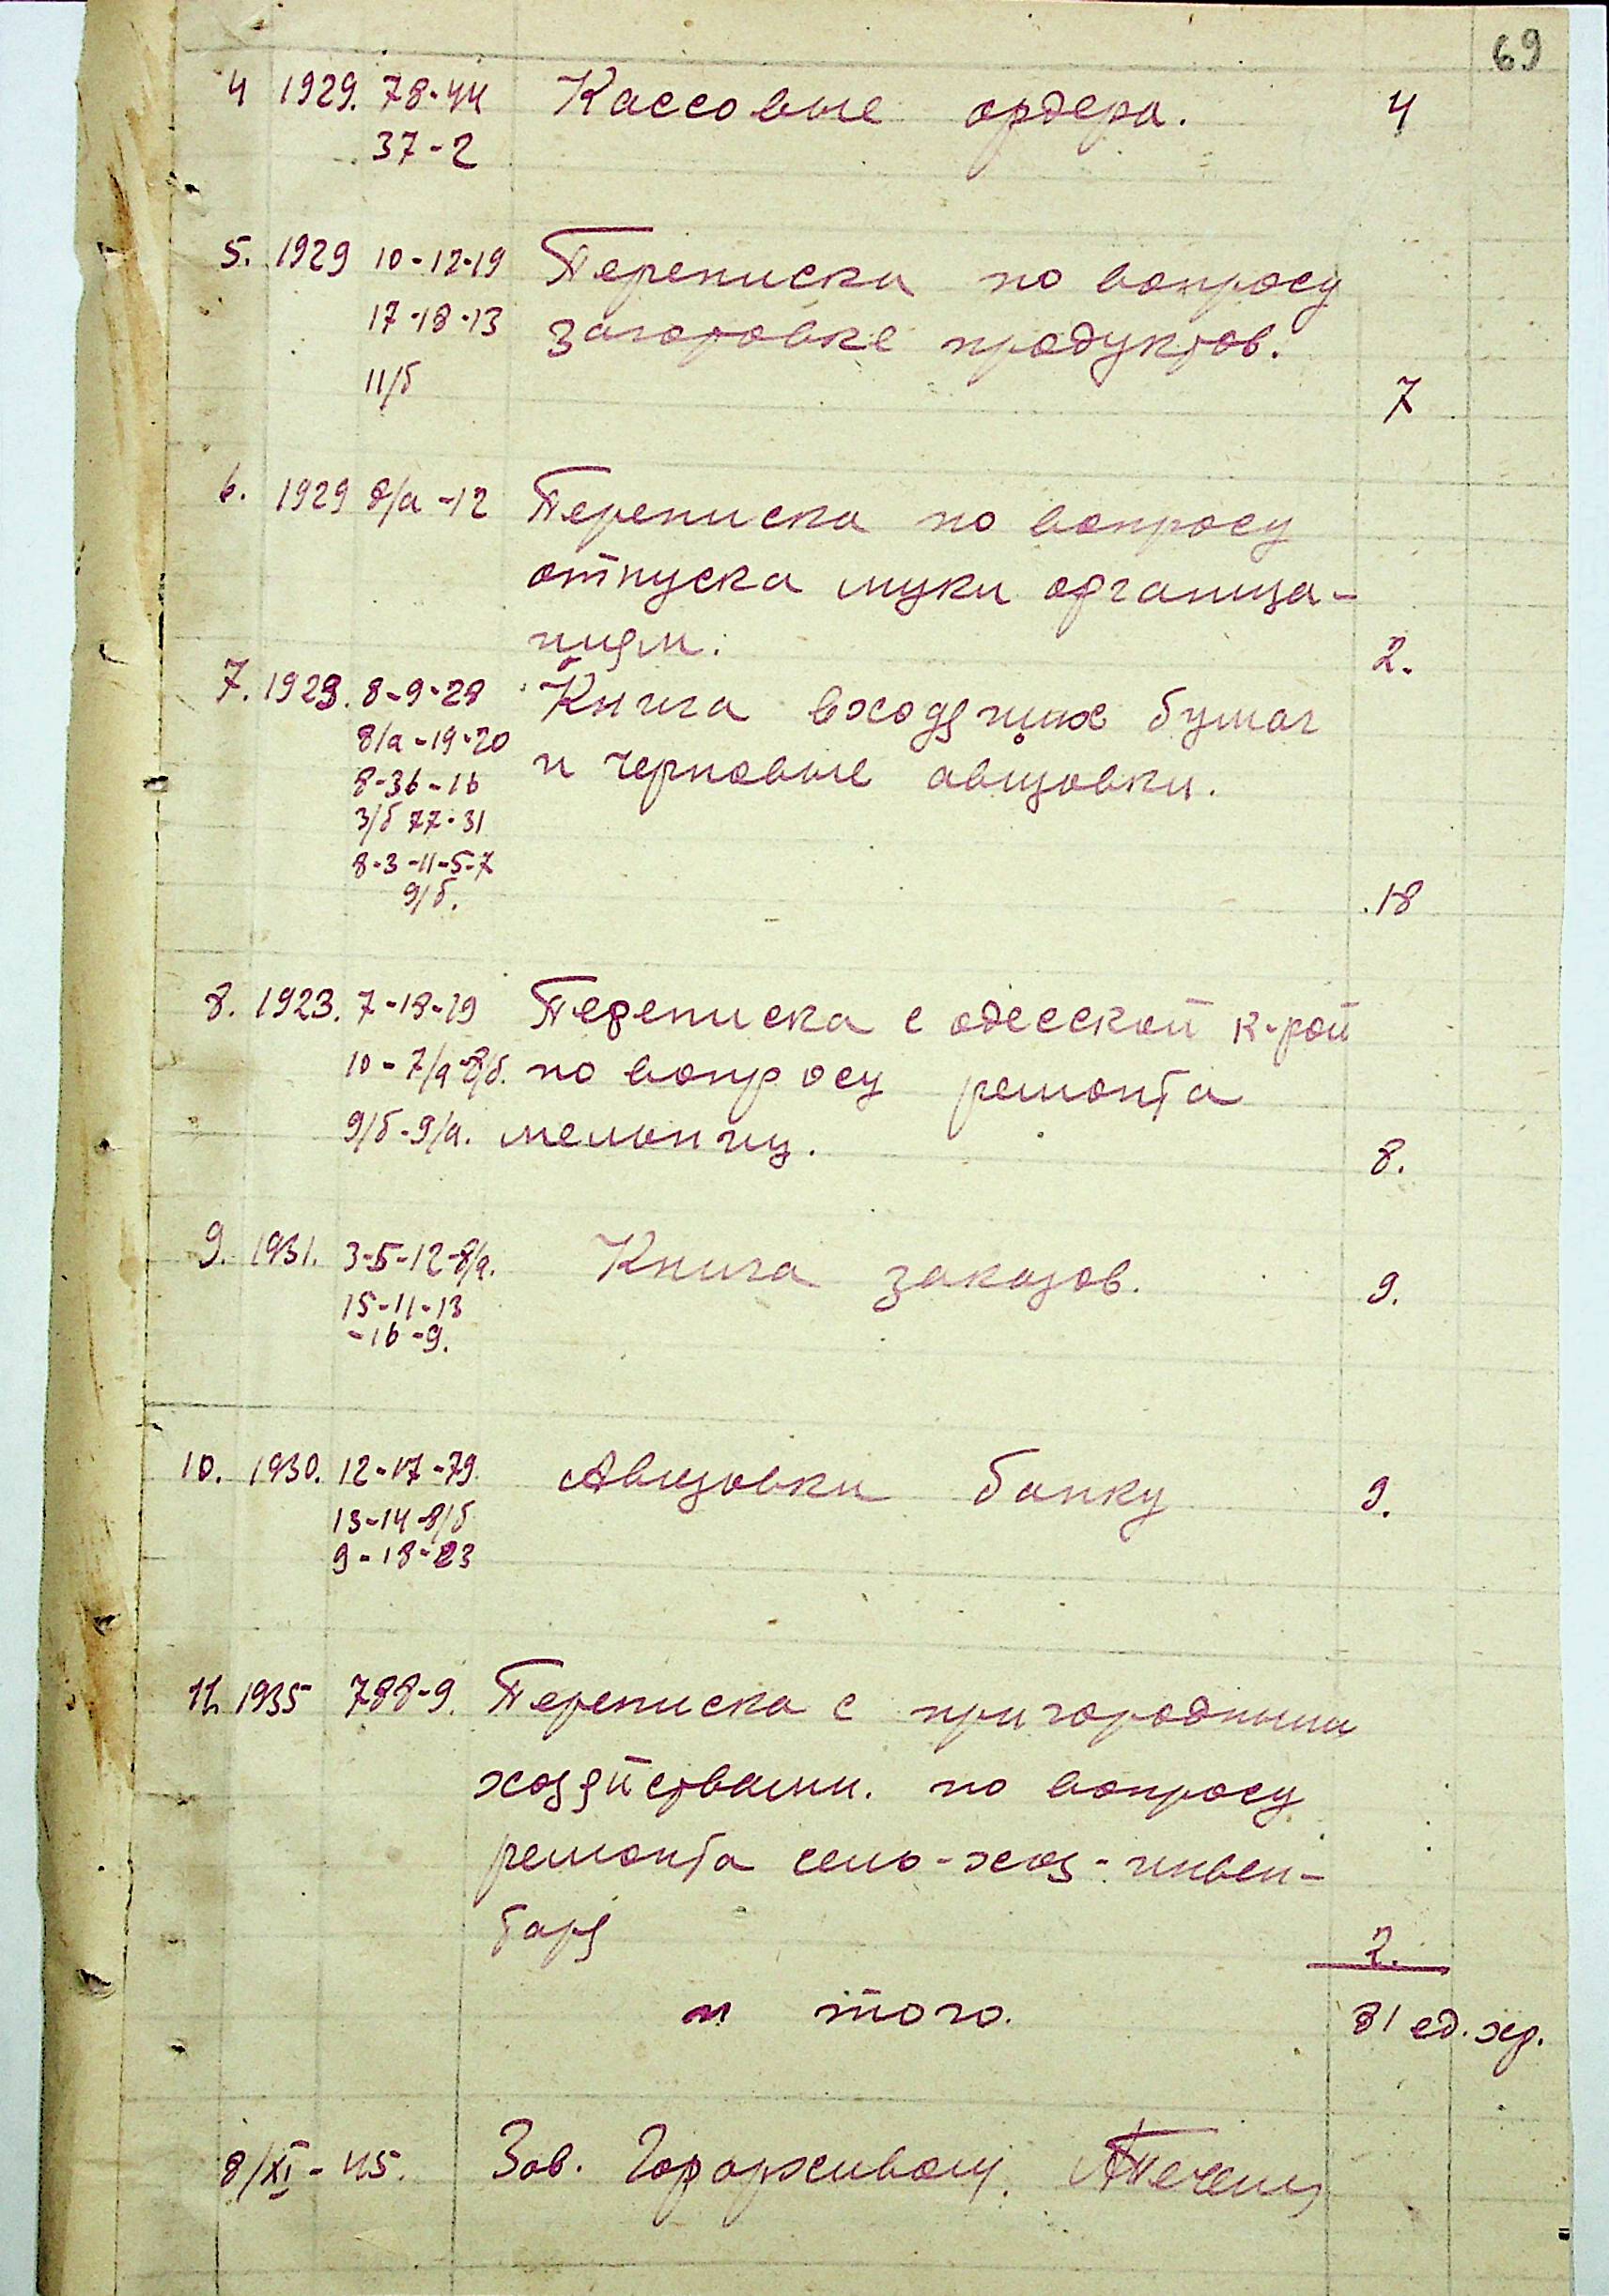 69
4 1929. 78-44 Кассовые ордера. 4
37-2
5. 1929 10-12-19 Переписка по вопросу
17-18-13 заготовке продуктов.
11/б
7
6. 1929 8/а-12 Переписка по вопросу
отпуска муки организа-
циям. 2.
7. 1929. 8-9-28 Книга входящих бумаг
8/а-19-20 и черновые авизовки.
8-36-16
3/б 77-31
8-3-11-5-7
9/б. 18
8. 1923. 7-18-19 Переписка с одесской к-рой
10-7/а-8/б. по вопросу ремонта
9/б-9/а. мельниц. 8.
9. 1931. 3-5-12-8/а. Книга заказов. 9.
15-11-13
-16-9.
10. 1930. 12-17-79. Авизовки банку 9.
13-14-8/б
9-18-23
11. 1935 788-9. Переписка с пригородными
хозяйствами. по вопросу
ремонта сельо-хоз-инвен-
таря 2.
и того. 81 ед. хр.
8/XI-45. Зав. Горархивом